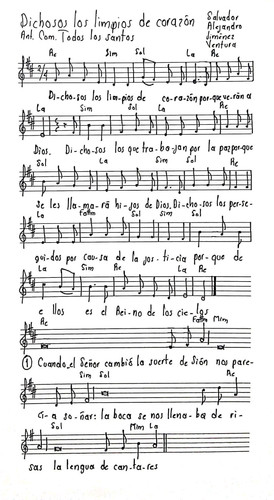 Dichosos los limpios de corazón
Salvador
Alejandro
Jiménez
Ventura
Ant. Com. Todos los santos
Re Sim Sol La Re
2/4
Di-cho-sos los lim-pios de co-ra-zón por-que ve-rán a
La Sim Sol La Re
Dios. Di-cho-sos los que tra-ba-jan por la paz por-que
Sol La Sim Sol La Re
se les lla-ma-rá hi-jos de Dios. Di-cho-sos los per-se-
La Fa#m Sol Sim Sol
gui-dos por cau-sa de la jus-ti-cia por-que de
La Sim Re La Re
e llos es el Rei-no de los cie-los
Re Fa#m Mim
1 Cuando el Señor cambió la suerte de Sión nos pare-
Sim Sol Re
Cí-a so-ñar: la boca se nos llena-ba de ri-
Sol Mim La
sas la lengua de can-ta-res